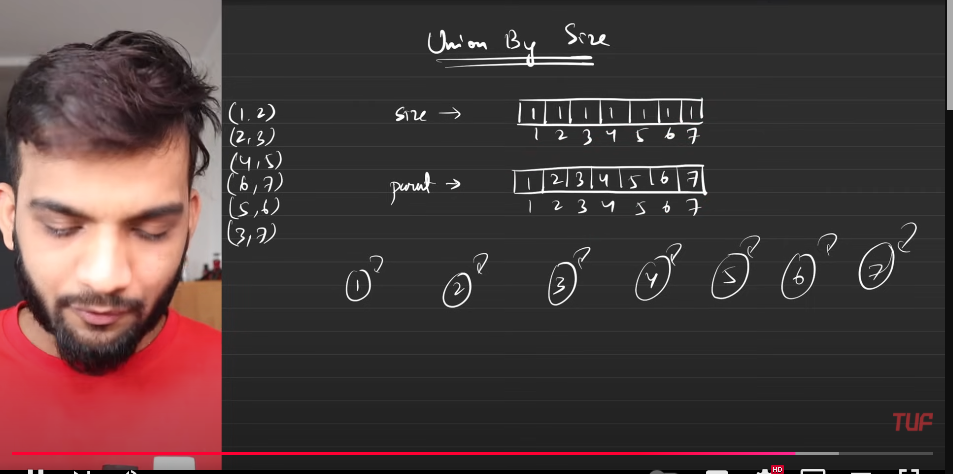 Union By Size
(1,2)
(2,3)
(4,5)
(6,7)
(5,6)
(3,7)
size → 1 1 1 1 1 1 1
1 2 3 4 5 6 7
parent → 1 2 3 4 5 6 7
1 2 3 4 5 6 7
1 2 3 4 5 6 7
TUF
HD